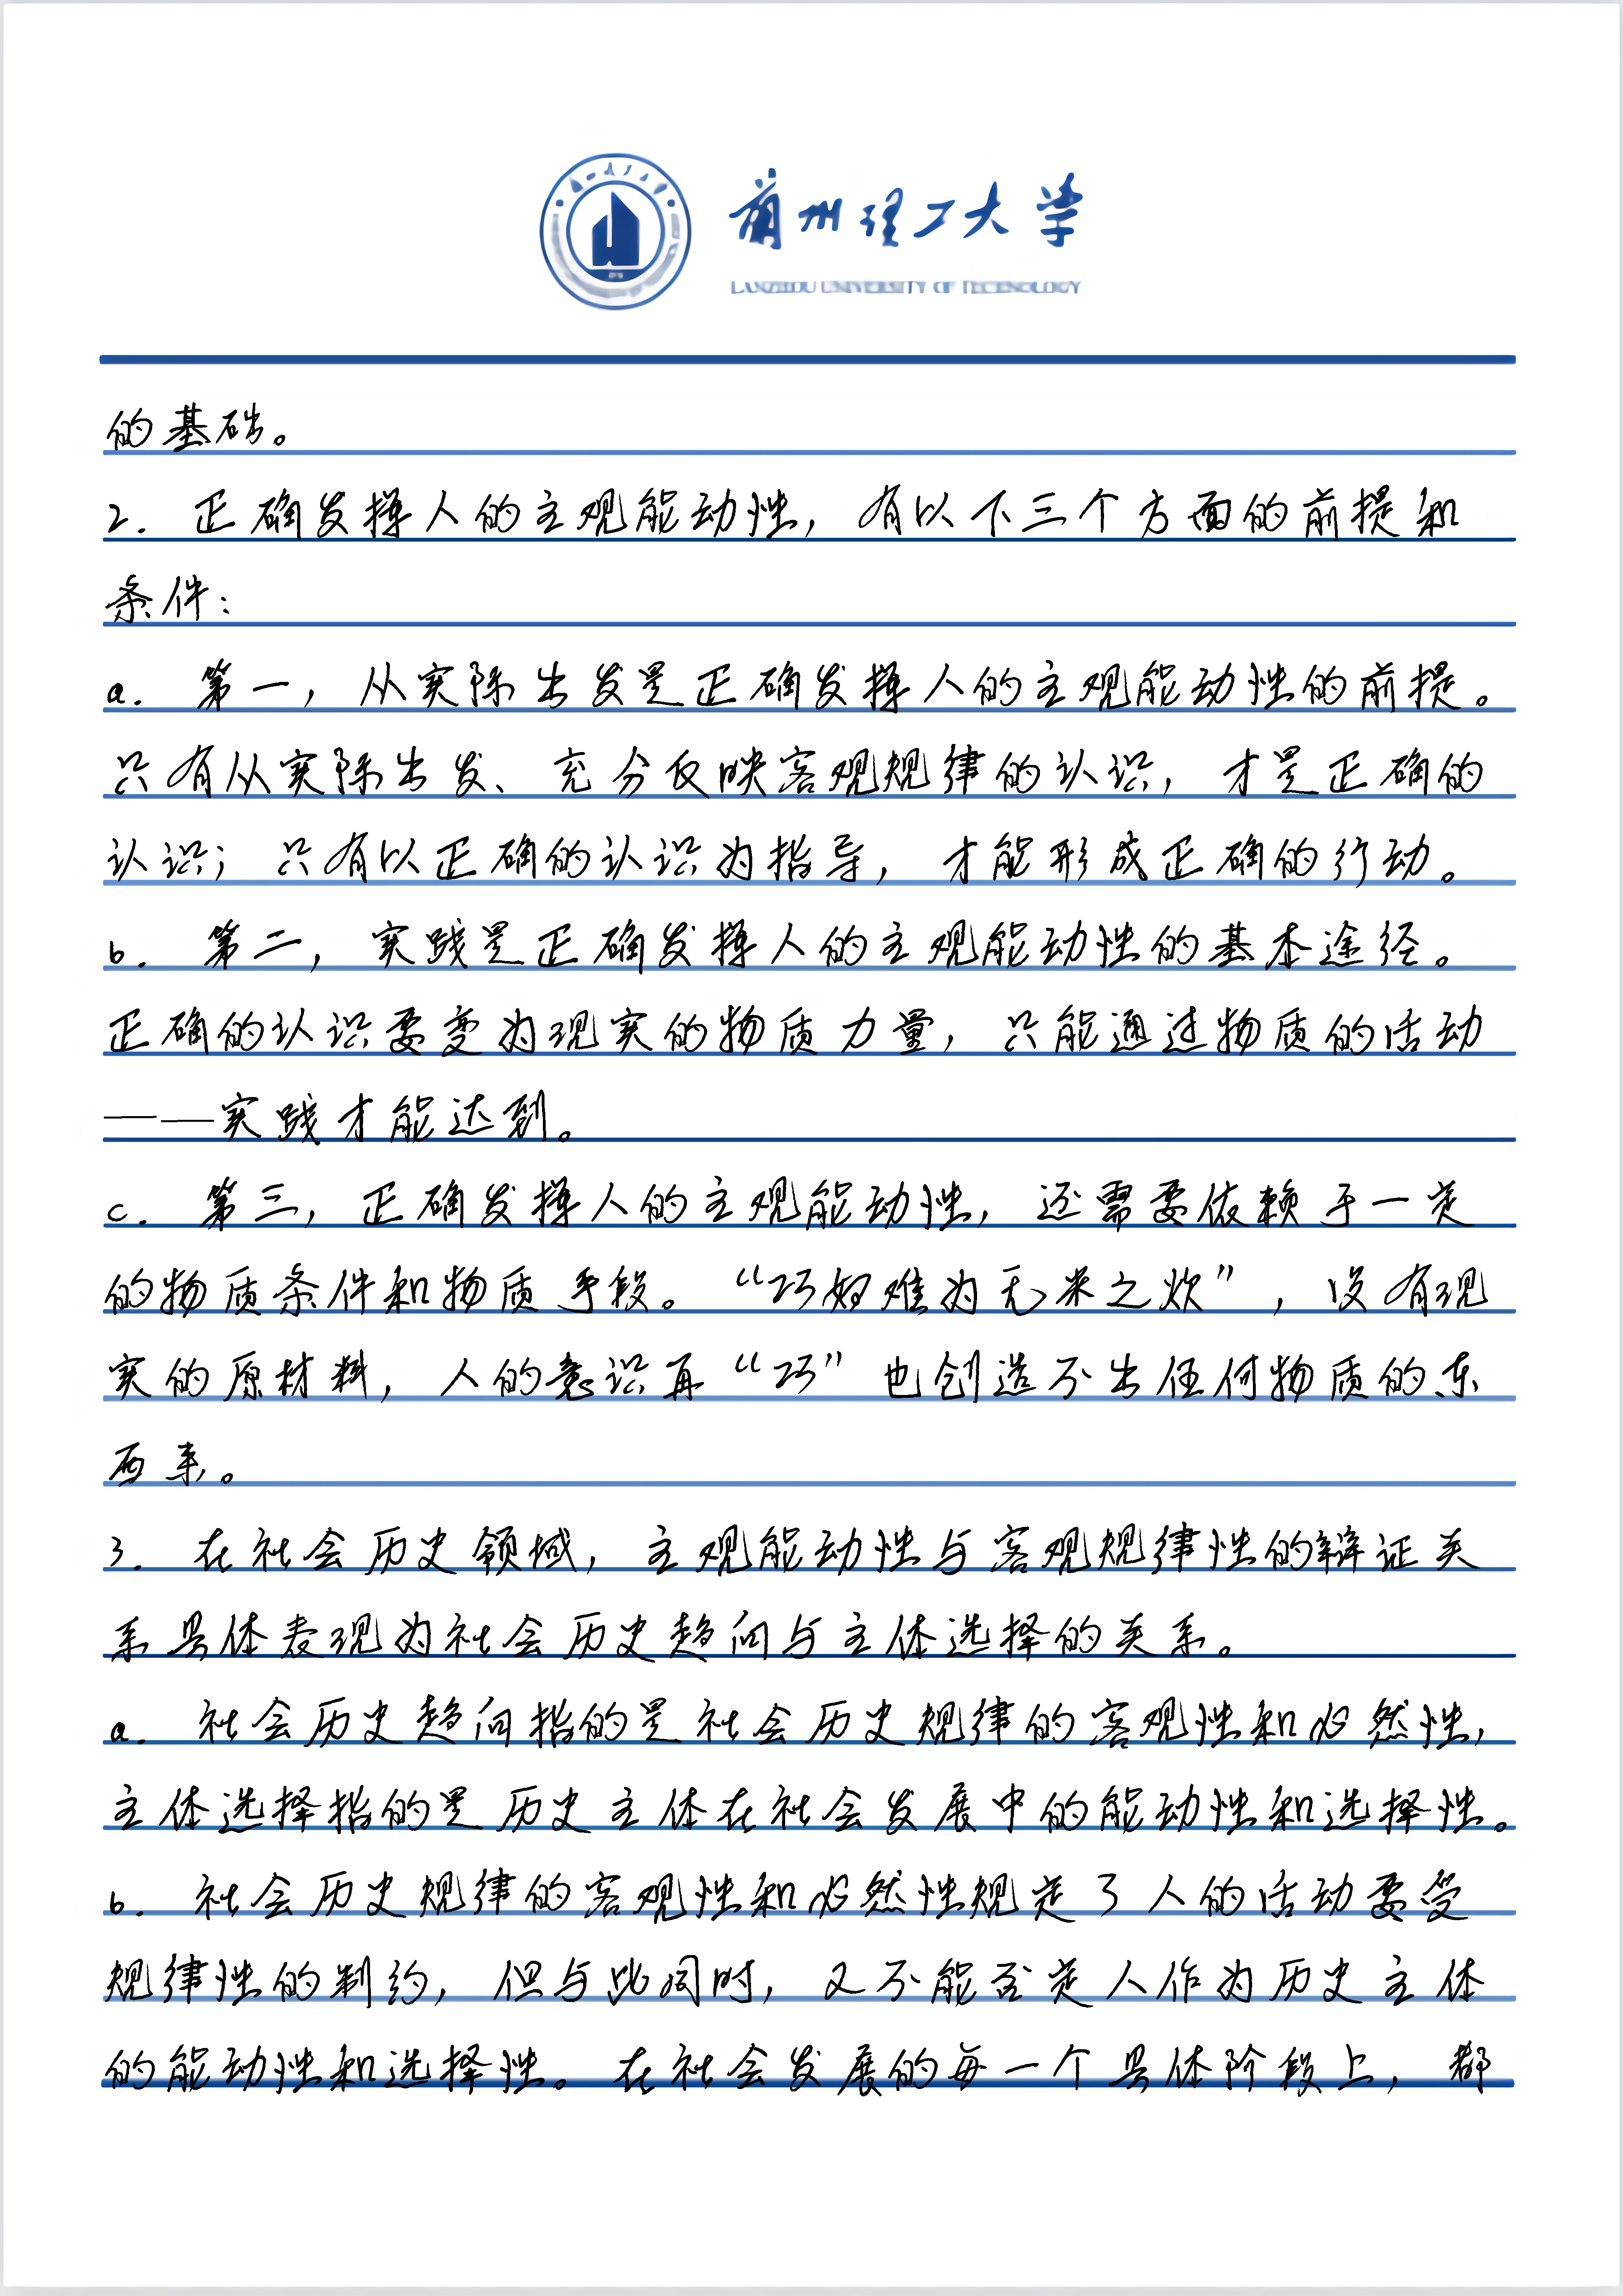 兰州理工大学
LANZHOU UNIVERSITY OF TECHNOLOGY
的基础。
2. 正确发挥人的主观能动性，有以下三个方面的前提和
条件：
a. 第一，从实际出发是正确发挥人的主观能动性的前提。
只有从实际出发、充分反映客观规律的认识，才是正确的
认识；只有以正确的认识为指导，才能形成正确的行动。
b. 第二，实践是正确发挥人的主观能动性的基本途径。
正确的认识要变为现实的物质力量，只能通过物质的活动
——实践才能达到。
c. 第三，正确发挥人的主观能动性，还需要依赖于一定
的物质条件和物质手段。“巧妇难为无米之炊”，没有现
实的原材料，人的意识再“巧”也创造不出任何物质的东
西来。
3. 在社会历史领域，主观能动性与客观规律性的辩证关
系具体表现为社会历史趋向与主体选择的关系。
a. 社会历史趋向指的是社会历史规律的客观性和必然性，
主体选择指的是历史主体在社会发展中的能动性和选择性。
b. 社会历史规律的客观性和必然性规定了人的活动要受
规律性的制约，但与此同时，又不能否定人作为历史主体
的能动性和选择性。在社会发展的每一个具体阶段上，都